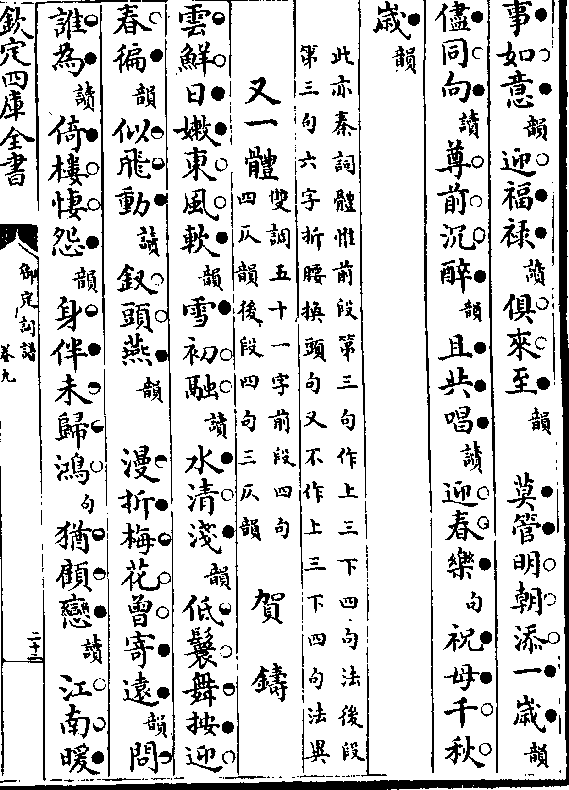 事如意韻迎福祿讀俱來至韻 莫管明朝添一歲韻
儘同向讀尊前沉醉韻且共唱讀迎春樂句祝母千秋
歲韻
此亦秦詞體惟前段第三句作上三下四句法後段
第三句六字折腰換頭句又不作上三下四句法異
又一體 雙調五十一字前段四句
四仄韻後段四句三仄韻 賀鑄
雲鮮日嫩東風軟韻雪初融讀水清淺韻低鬟舞按迎
春徧韻似飛動讀釵頭燕韻 漫折梅花曾寄遠韻問
誰為讀倚樓悽怨韻身伴未歸鴻句猶顧戀讀江南暖
欽定四庫全書
御定詞譜
卷九
二十二